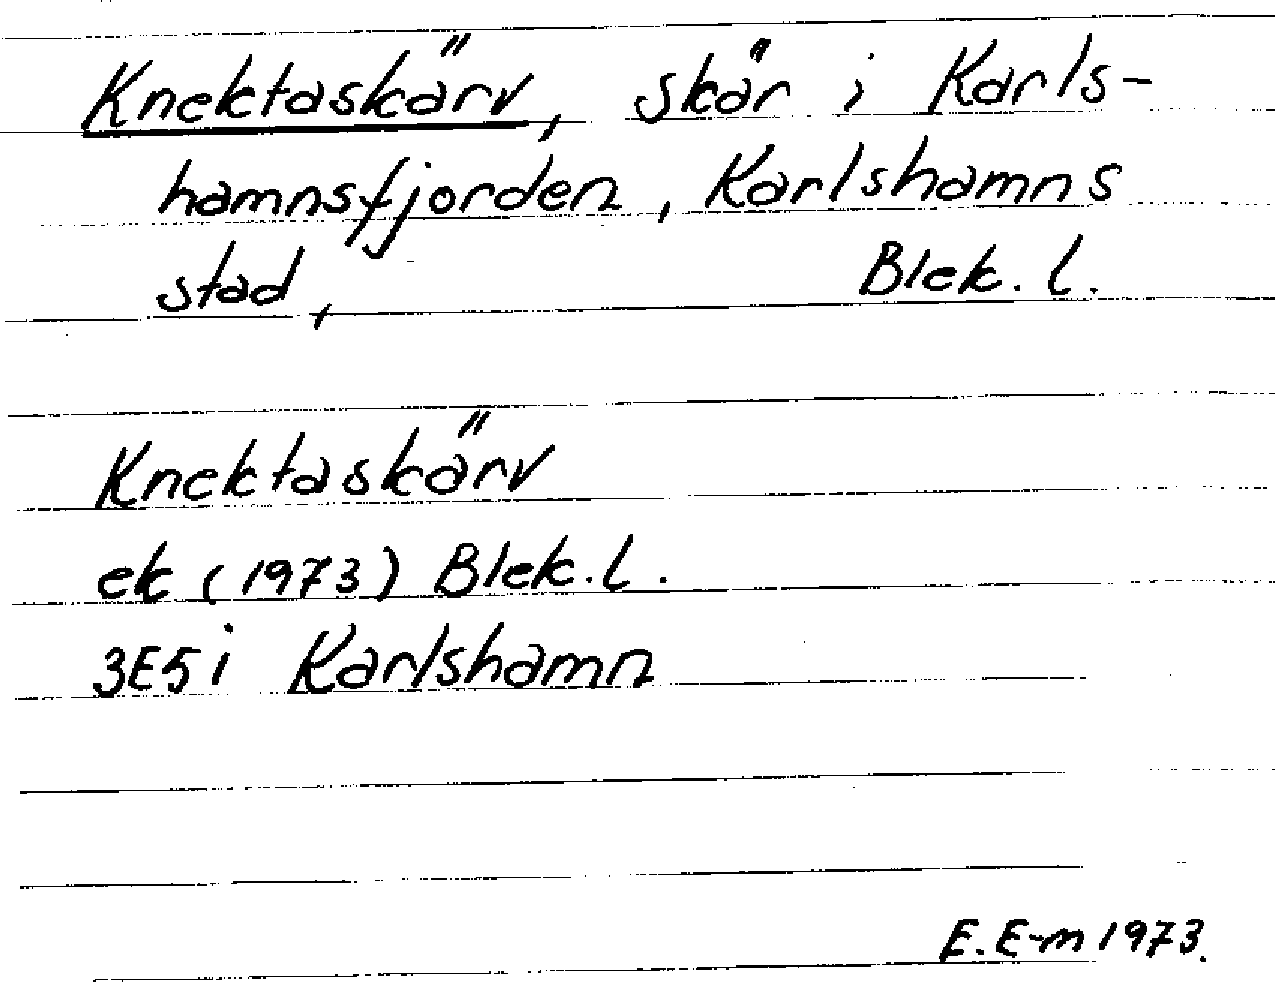 Knektaskärv, skär i Karls-
hamnsfjorden, Karlshamns
stad, Blek. l.
Knektaskärv
ek (1973) Blek. l.
3E5i Karlshamn
E. E-m 1973.